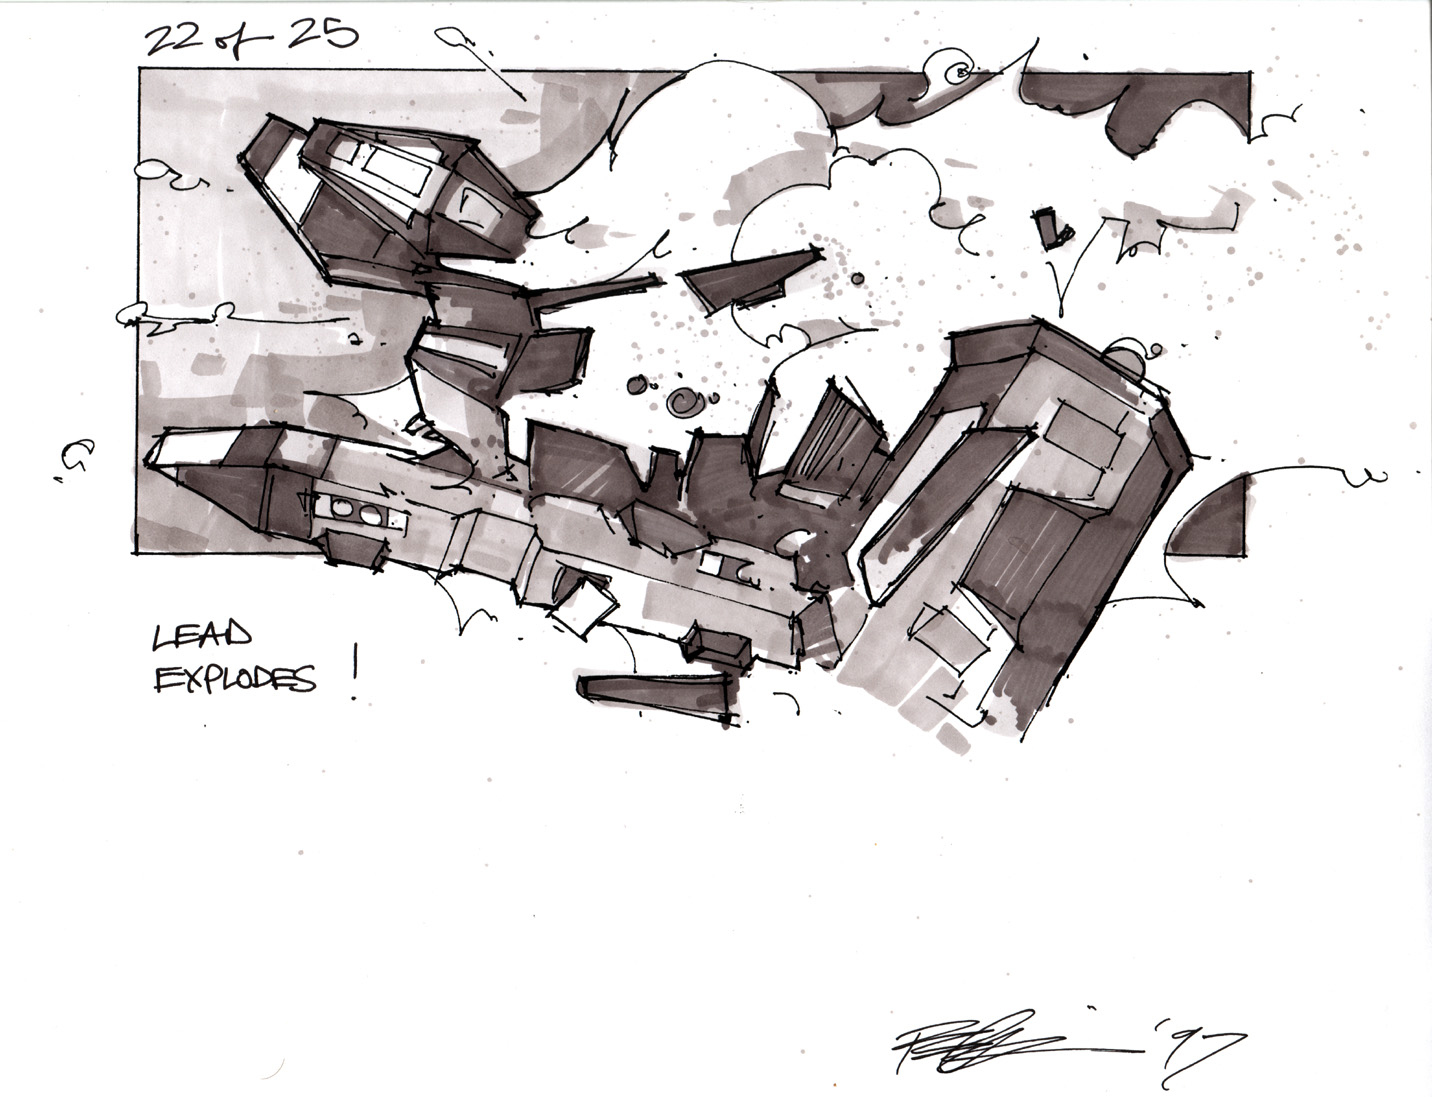 22 of 25
LEAD
EXPLODES !
'97